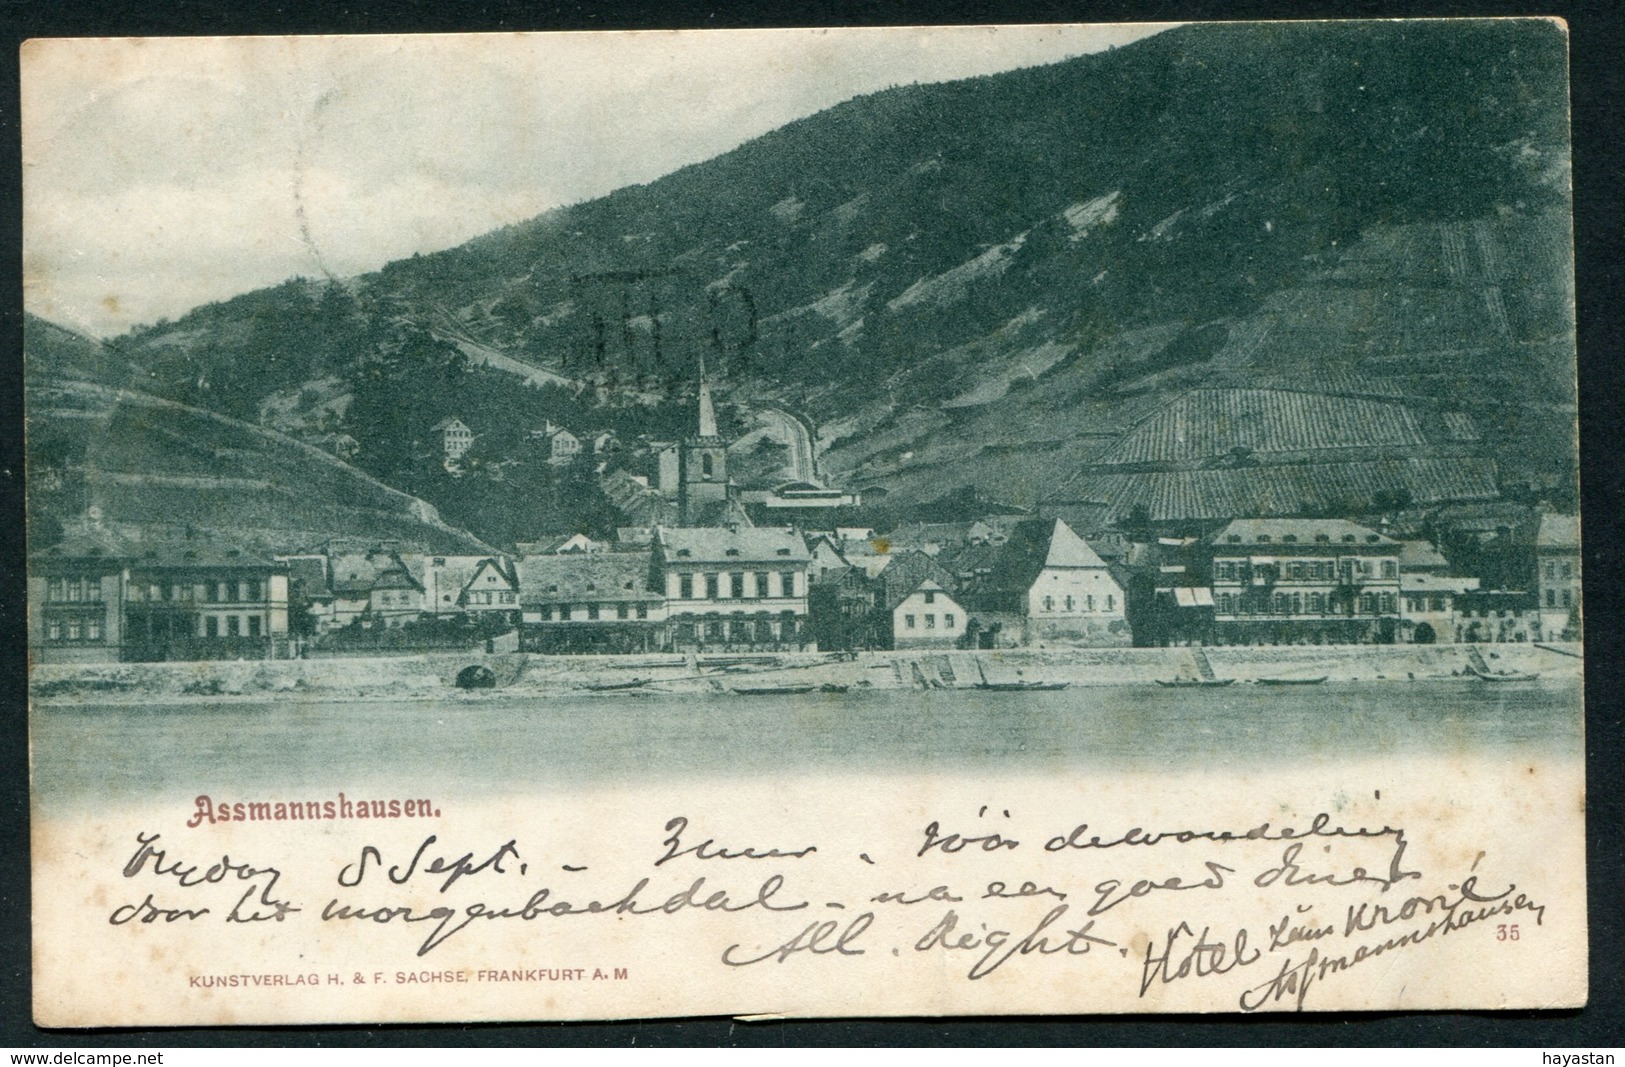 Assmannshausen.
Vrydag 8 Sept. - 3 uur. vóór de wandeling
door het morgenbachdal - na een goed diner
All. Right.
Hotel zum Krone
Assmannshausen
35
KUNSTVERLAG H. & F. SACHSE, FRANKFURT A. M
www.delcampe.net
hayastan